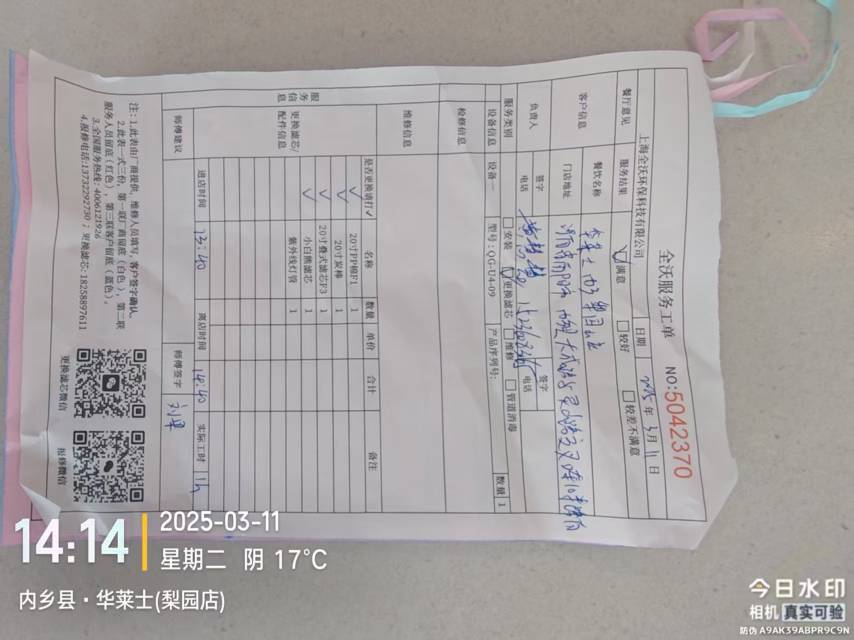 全沃服务工单
NO:5042370
上海全沃环保科技有限公司 日期 2025年3月11日
餐厅意见 服务结果 ☑满意 □较好 □较差不满意
客户信息 餐饮名称 华莱士内乡梨园店
门店地址
负责人 签字 电话 签字 电话
服务类别 □安装 ☑更换滤芯 □维修 □管道消毒
设备信息 设备一 型号:QG-U4-09 产品序列号: 数量 1
检修信息
维修信息
服务信息
更换滤芯/配件信息
是否更换请打√ 名称 数量 单价 合计 备注
√ 20寸PP棉F1 1
√ 20寸炭棒 1
√ 20寸叠式滤芯F3 1
√ 小白熊滤芯 1
紫外线灯管 1
师傅建议 进店时间 13:40 离店时间 14:40 实际工时 1h
师傅签字
注:1.此表由厂商提供,维修人员填写,客户签字确认。
2.此表一式三份,第一联厂商留底(白色),第二联
服务人员留底(红色),第三联客户留底(蓝色)。
3.全国服务热线:4006121926
4.报修电话:13732292730;更换滤芯:18258897611
更换滤芯微信 报修微信
14:14
2025-03-11
星期二 阴 17°C
内乡县·华莱士(梨园店)
今日水印
相机 真实可验
防伪 A9AK39ABPR9C9N